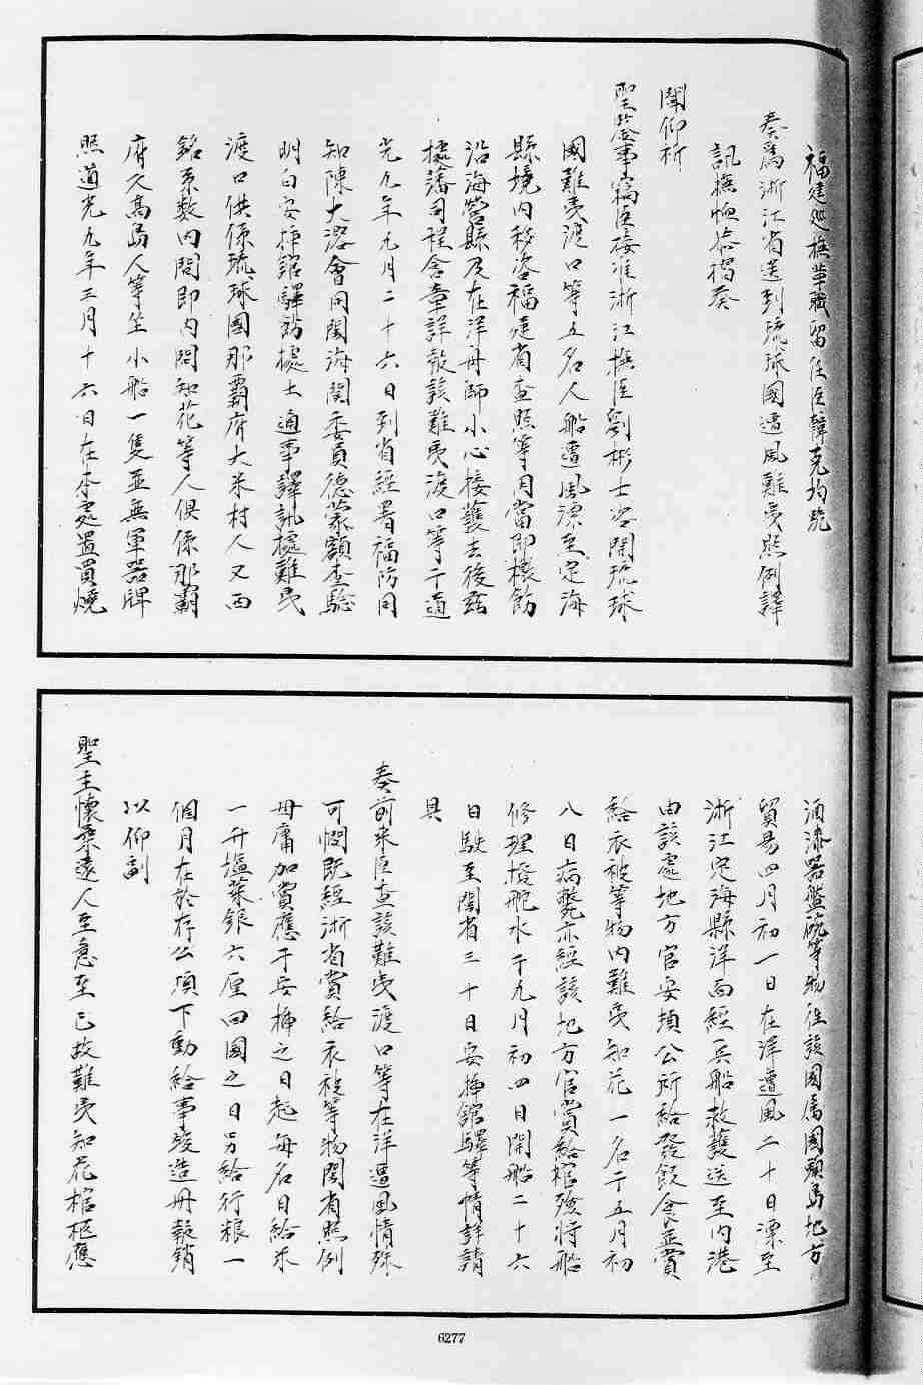 福建巡撫革職留任臣韓克均跪
奏爲浙江省送到琉球國遭風難夷照例譯
訊撫恤恭摺奏
聞仰祈
聖鑒事竊臣接准浙江撫臣劉彬士咨開琉球
國難夷渡口等五名人船遭風漂至定海
縣境內移咨福建省查照等因當即檄飭
沿海營縣及在洋舟師小心接護去後茲
據藩司程含章詳報該難夷渡口等于道
光九年九月二十六日到省經署福防同
知陳大溶會同閩海關委員德蒙額查驗
明白安揷館驛飭據土通事譯訊據難夷
渡口供係琉球國那霸府大米村人又西
銘系數內間即內間知花等人俱係那霸
府久高島人等坐小船一隻並無軍器牌
照道光九年三月十六日在本處置買燒
酒漆器磁碗等物往該國屬國頭島地方
貿易四月初一日在洋遭風二十日漂至
浙江定海縣洋面經兵船救護送至內港
由該處地方官安頓公所給發飯食並賞
給衣被等物內難夷知花一名于五月初
八日病斃亦經該地方官賞給棺殮將船
修理撥舵水于九月初四日開船二十六
日駛至閩省三十日安揷館驛等情詳請
具
奏前來臣查該難夷渡口等在洋遭風情殊
可憫既經浙省賞給衣被等物閩省照例
毋庸加賞應于安揷之日起每名日給米
一升塩菜銀六厘回國之日另給行粮一
個月在於存公項下動給事竣造冊報銷
以仰副
聖主懷柔遠人至意至已故難夷知花棺柩應
6277